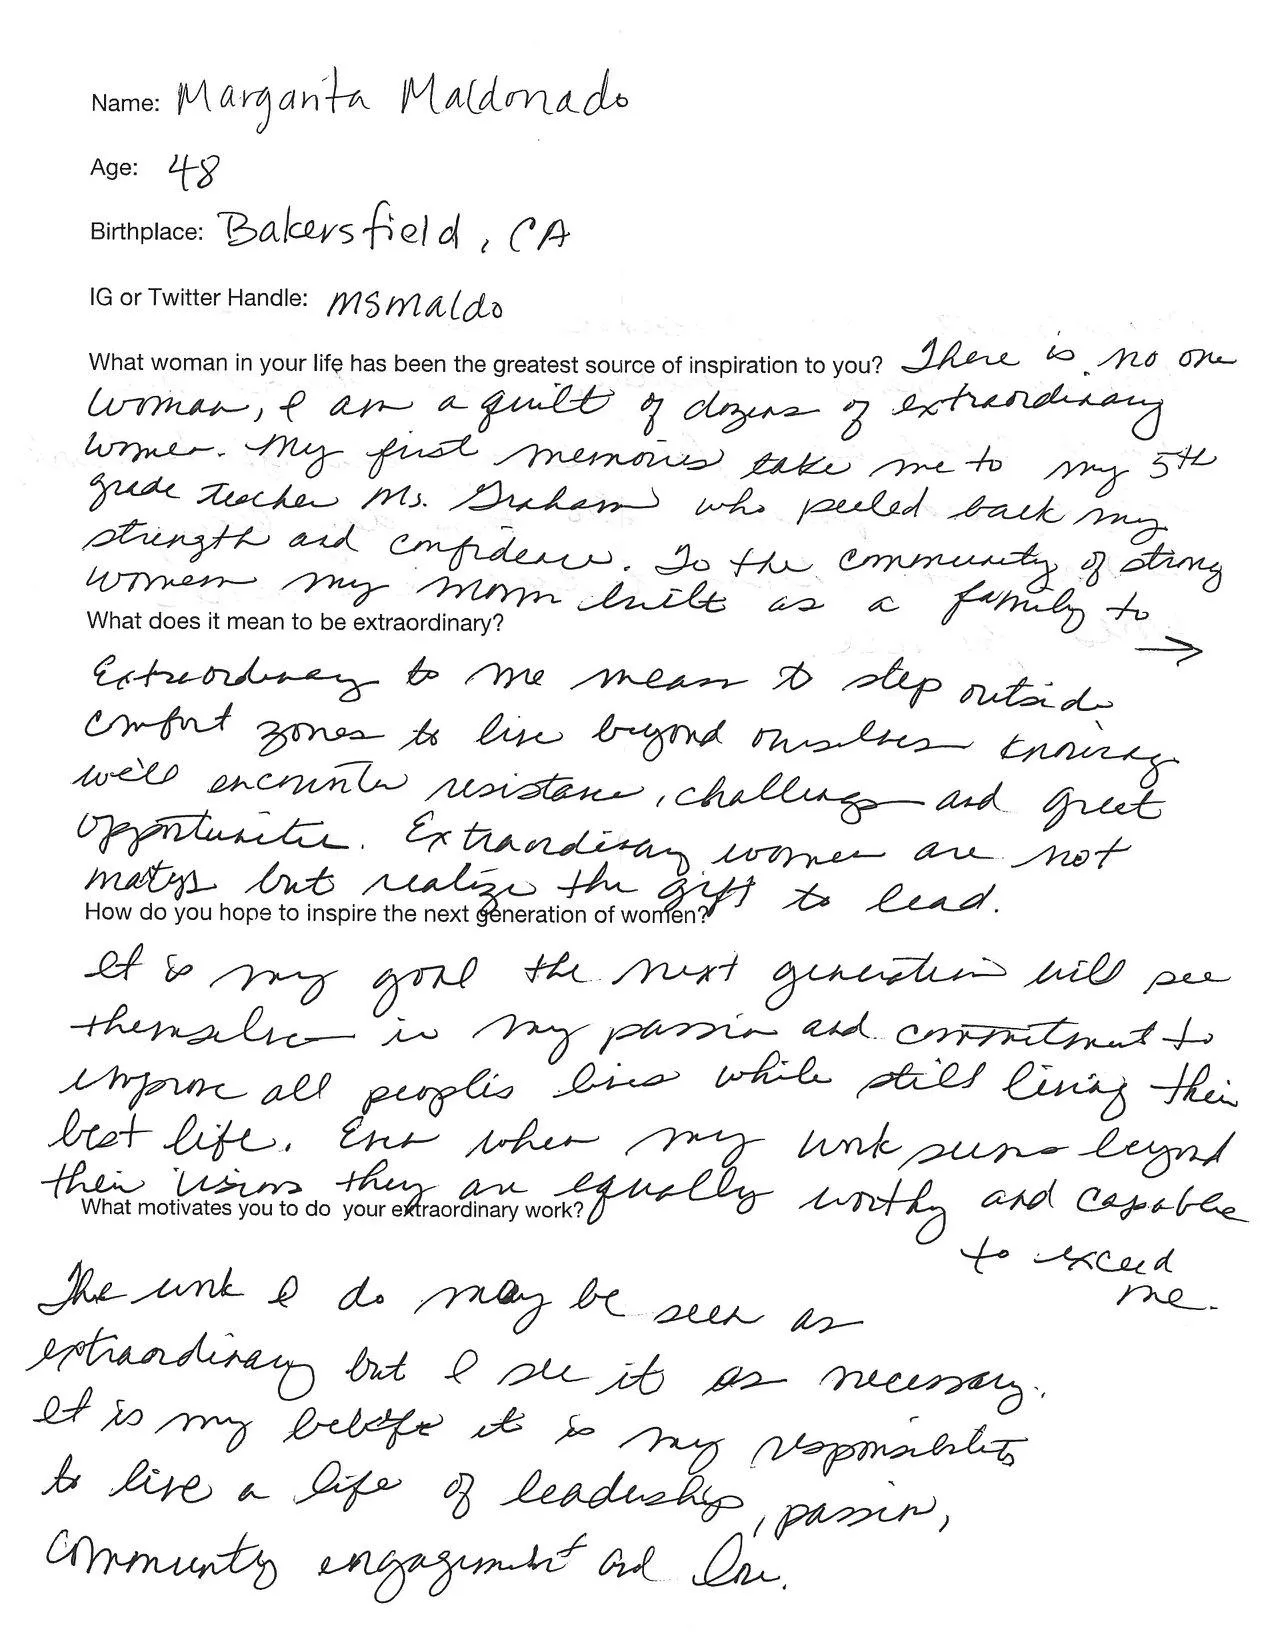 Name: Margarita Maldonado
Age: 48
Birthplace: Bakersfield, CA
IG or Twitter Handle: msmaldo
What woman in your life has been the greatest source of inspiration to you? There is no one
woman, I am a quilt of dozens of extraordinary
women. My first memories take me to my 5th
grade teacher Ms. Graham who peeled back my
strength and confidence. To the community of strong
women my mom built as a family to
What does it mean to be extraordinary?
→
Extraordinary to me means to step outside
comfort zones to live beyond ourselves knowing
we'll encounter resistance, challenges and great
opportunities. Extraordinary women are not
martyrs but realize the gift to lead.
How do you hope to inspire the next generation of women?
It is my goal the next generation will see
themselves in my passion and commitment to
improve all people's lives while still living their
best life. Even when my work seems beyond
their visions they are equally worthy and capable
to exceed
me.
What motivates you to do your extraordinary work?
The work I do may be seen as
extraordinary but I see it as necessary.
It is my belief it is my responsibility
to live a life of leadership, passion,
community engagement and love.